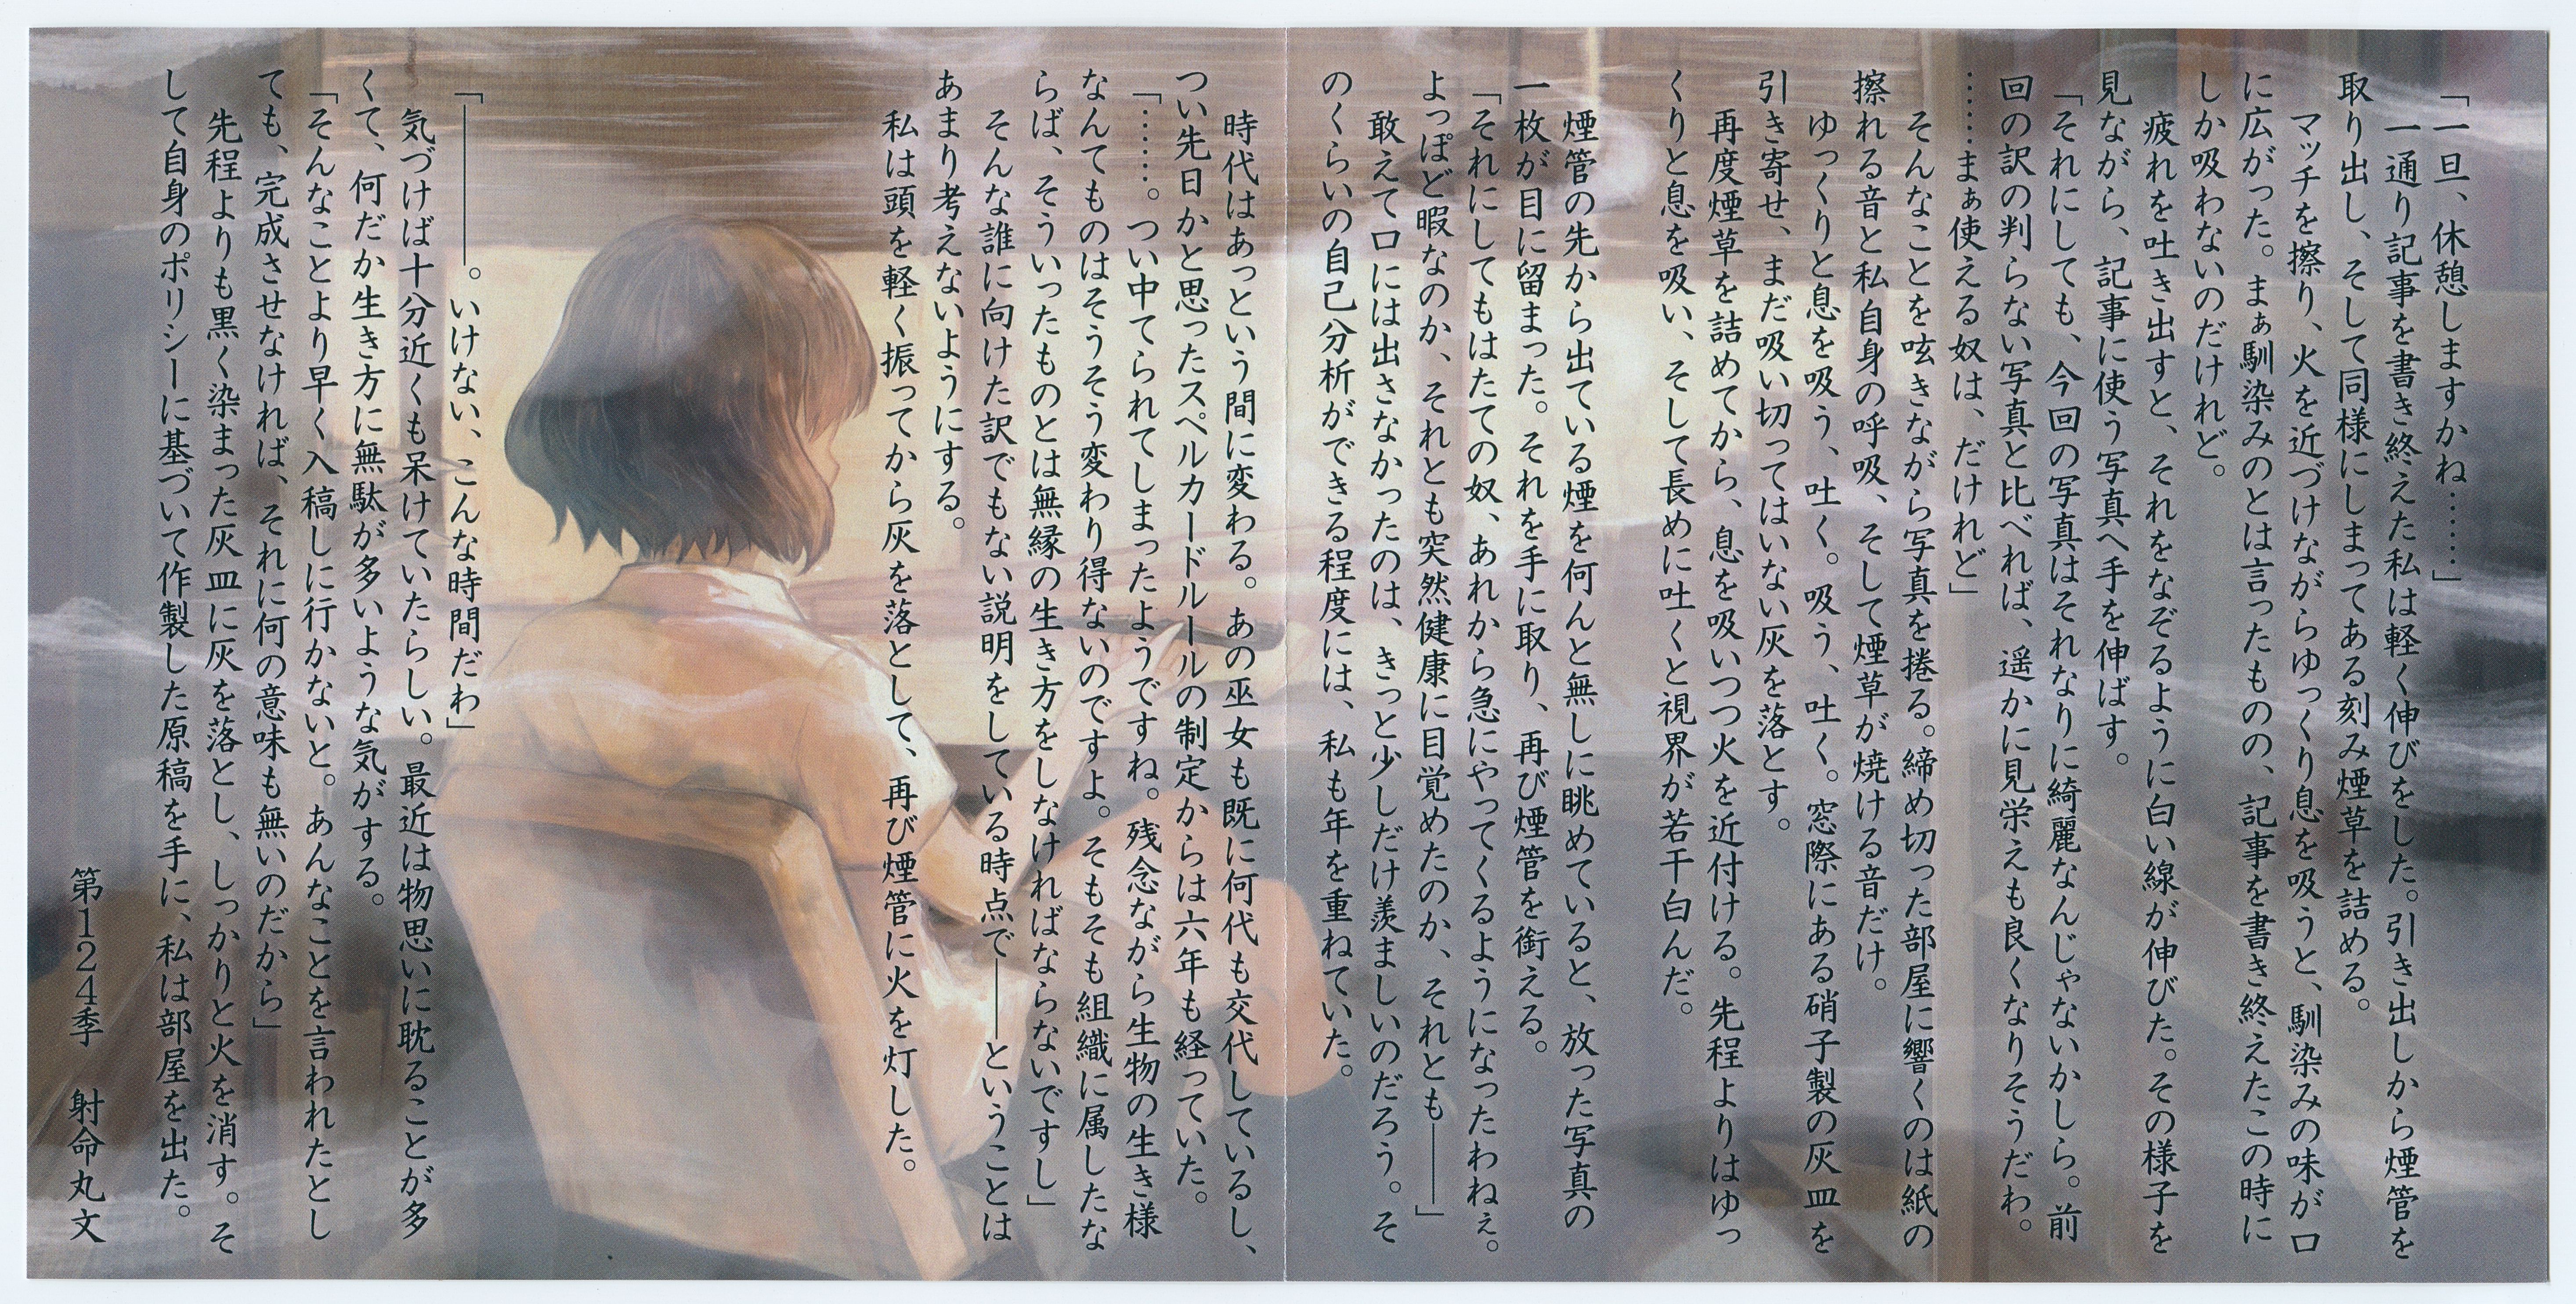 「一旦、休憩しますかね……」
　一通り記事を書き終えた私は軽く伸びをした。引き出しから煙管を
取り出し、そして同様にしまってある刻み煙草を詰める。
　マッチを擦り、火を近づけながらゆっくり息を吸うと、馴染みの味が口
に広がった。まぁ馴染みのとは言ったものの、記事を書き終えたこの時に
しか吸わないのだけれど。
　疲れを吐き出すと、それをなぞるように白い線が伸びた。その様子を
見ながら、記事に使う写真へ手を伸ばす。
「それにしても、今回の写真はそれなりに綺麗なんじゃないかしら。前
回の訳の判らない写真と比べれば、遥かに見栄えも良くなりそうだわ。
……まぁ使える奴は、だけれど」
　そんなことを呟きながら写真を捲る。締め切った部屋に響くのは紙の
擦れる音と私自身の呼吸、そして煙草が焼ける音だけ。
　ゆっくりと息を吸う、吐く。吸う、吐く。窓際にある硝子製の灰皿を
引き寄せ、まだ吸い切ってはいない灰を落とす。
　再度煙草を詰めてから、息を吸いつつ火を近付ける。先程よりはゆっ
くりと息を吸い、そして長めに吐くと視界が若干白んだ。
　煙管の先から出ている煙を何んと無しに眺めていると、放った写真の
一枚が目に留まった。それを手に取り、再び煙管を銜える。
「それにしてもはたての奴、あれから急にやってくるようになったわねぇ。
よっぽど暇なのか、それとも突然健康に目覚めたのか、それとも――――」
　敢えて口には出さなかったのは、きっと少しだけ羨ましいのだろう。そ
のくらいの自己分析ができる程度には、私も年を重ねていた。
　時代はあっという間に変わる。あの巫女も既に何代も交代しているし、
つい先日かと思ったスペルカードルールの制定からは六年も経っていた。
「……。つい中てられてしまったようですね。残念ながら生物の生き様
なんてものはそうそう変わり得ないのですよ。そもそも組織に属したな
らば、そういったものとは無縁の生き方をしなければならないですし」
　そんな誰に向けた訳でもない説明をしている時点で――ということは
あまり考えないようにする。
　私は頭を軽く振ってから灰を落として、再び煙管に火を灯した。
「――――――。いけない、こんな時間だわ」
　気づけば十分近くも呆けていたらしい。最近は物思いに耽ることが多
くて、何だか生き方に無駄が多いような気がする。
「そんなことより早く入稿しに行かないと。あんなことを言われたとし
ても、完成させなければ、それに何の意味も無いのだから」
　先程よりも黒く染まった灰皿に灰を落とし、しっかりと火を消す。そ
して自身のポリシーに基づいて作製した原稿を手に、私は部屋を出た。
第124季　射命丸文